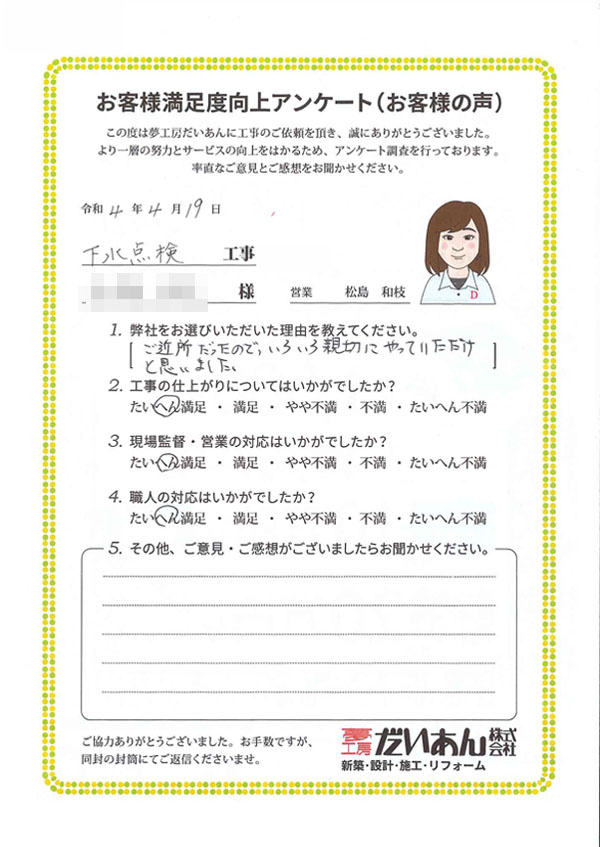 お客様満足度向上アンケート(お客様の声)
この度は夢工房だいあんに工事のご依頼を頂き、誠にありがとうございました。
より一層の努力とサービスの向上をはかるため、アンケート調査を行っております。
率直なご意見とご感想をお聞かせください。
令和 4 年 4 月 19 日
下水点検 工事
様 営業 松島 和枝
D
1. 弊社をお選びいただいた理由を教えてください。
ご近所だったので、いろいろ親切にやっていただけ
と思いました。
2. 工事の仕上がりについてはいかがでしたか?
たいへん満足 ・ 満足 ・ やや不満 ・ 不満 ・ たいへん不満
3. 現場監督・営業の対応はいかがでしたか?
たいへん満足 ・ 満足 ・ やや不満 ・ 不満 ・ たいへん不満
4. 職人の対応はいかがでしたか?
たいへん満足 ・ 満足 ・ やや不満 ・ 不満 ・ たいへん不満
5. その他、ご意見・ご感想がございましたらお聞かせください。
ご協力ありがとうございました。お手数ですが、
同封の封筒にてご返信くださいませ。
夢工房 だいあん 株式会社
新築・設計・施工・リフォーム